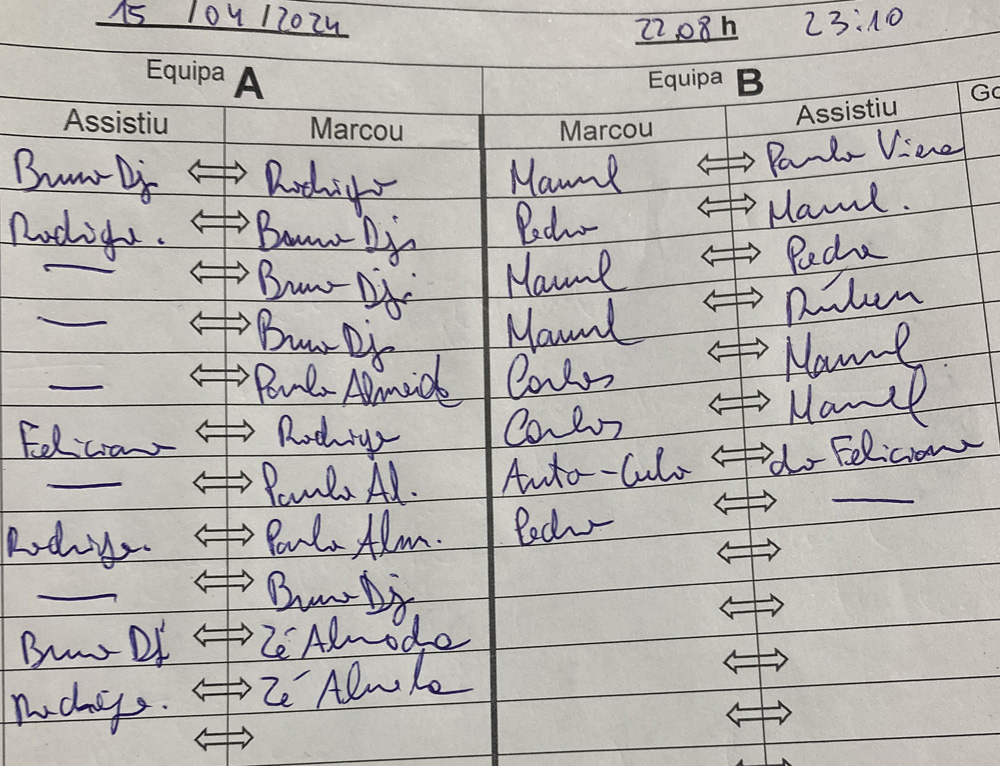 15 / 04 / 2024 22:08 h 23:10
Equipa A Equipa B
Assistiu Marcou Marcou Assistiu Go
Bruno Dj. Rodrigo Manuel Paulo Viera
Rodrigo. Bruno Dj. Pedro Manuel.
— Bruno Dj. Manuel Pedro
— Bruno Dj. Manuel Rúben
— Paulo Almeida Carlos Manuel
Feliciano Rodrigo Carlos Manuel
— Paulo Al. Auto-Culo do Feliciano
Rodrigo. Paulo Alm. Pedro —
— Bruno Dj
Bruno Dj Zé Almeida
Rodrigo. Zé Almeida